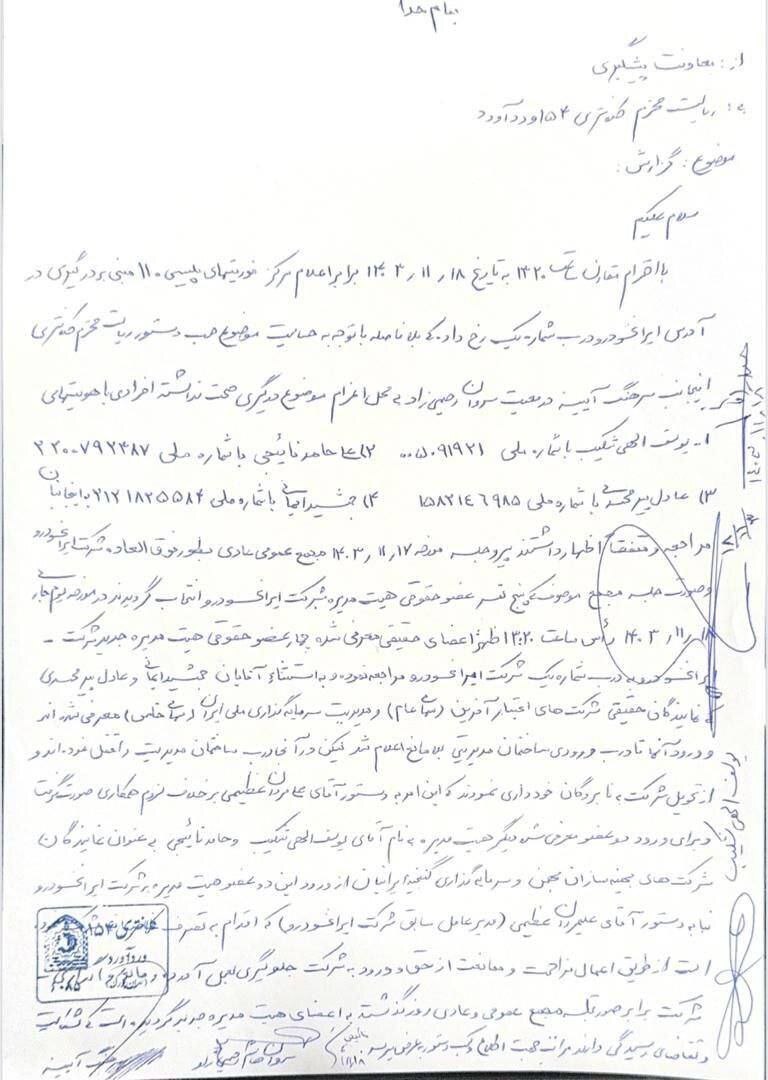 بنام خدا
از: معاونت پیشگیری
به: ریاست محترم کلانتری ۱۵۴ وردآورد
موضوع: گزارش:
سلام علیکم
با احترام مقارن ساعت ۱۳:۲۰ به تاریخ ۱۴۰۳/۱۱/۱۸ برابر اعلام مرکز فوریتهای پلیسی ۱۱۰ مبنی بر درگیری در
آدرس ایرانخودرو درب شماره یک رخ داده که بلافاصله با توجه به حساسیت موضوع حسب دستور ریاست محترم کلانتری
اینجانب سرهنگ آیینه در معیت ستوان رحیمی راد به محل اعزام موضوع درگیری صحت نداشته افرادی با هویتهای
۱- یوسف الهی شکیب با شماره ملی ۰۰۵۰۹۱۹۲۱ ۲) حامد نائیجی با شماره ملی ۲۲۰۰۷۹۲۴۸۷
۳) عادل پیرمحمدی با شماره ملی ۱۵۸۲۱۴۶۹۸۵ ۴) جمشید ایمانی با شماره ملی ۲۱۲۱۸۲۵۵۸۴ به اینجانبان
مراجعه و متفقاً اظهار داشتند پیرو جلسه مورخه ۱۴۰۳/۱۱/۱۷ مجمع عمومی عادی بطور فوق العاده شرکت ایرانخودرو
و صورت جلسه مجمع موصوف که پنج نفر عضو حقوقی هیت مدیره شرکت ایرانخودرو انتخاب گردیدند در مورخه یوم جاری
۱۴۰۳/۱۱/۱۸ رأس ساعت ۱۳:۲۰ ظهر اعضای حقیقی معرفی شده چهار عضو حقوقی هیت مدیره جدید شرکت -
ایرانخودرو به درب شماره یک شرکت ایرانخودرو مراجعه نموده و به استثناء آقایان جمشید ایمانی و عادل پیرمحمدی
که نمایندگان حقیقی شرکت های اعتبار آفرین (سهامی عام) و مدیریت سرمایه گذاری ملی ایران (سهامی خاص) معرفی شده اند
و ورود آنها تا درب ورودی ساختمان مدیریتی بلامانع اعلام شد لیکن در آنجا درب ساختمان مدیریت را قفل نموده اند و
از تحویل شرکت به نامبردگان خودداری نمودند که این امر به دستور آقای عظیمی بر خلاف لزوم همکاری صورت گرفت
و برای ورود دو عضو معرفی شده دیگر هیت مدیره به نام آقای یوسف الهی شکیب و حامد نائیجی به عنوان نمایندگان
شرکت های بهینه سازان بهمن و سرمایه گذاری گنجینه ایرانیان از ورود این دو عضو هیت مدیره به شرکت ایرانخودرو
بنا به دستور آقای عظیمی (مدیر عامل سابق شرکت ایرانخودرو) که اقدام به تصرف
است از طریق اعمال مزاحمت و ممانعت از حق و ورود به شرکت جلوگیری بعمل آمده
شرکت برابر صورتجلسه مجمع عمومی و عادی روز گذشته به اعضای هیت مدیره جدید گردیده است که شکایت
و تقاضای رسیدگی دارند مراتب جهت اطلاع و کسب دستور بعرض میرسد
۱۱/۱۸
سرهنگ آیینه
کلانتری ۱۵۴
وردآورد
یوسف الهی شکیب